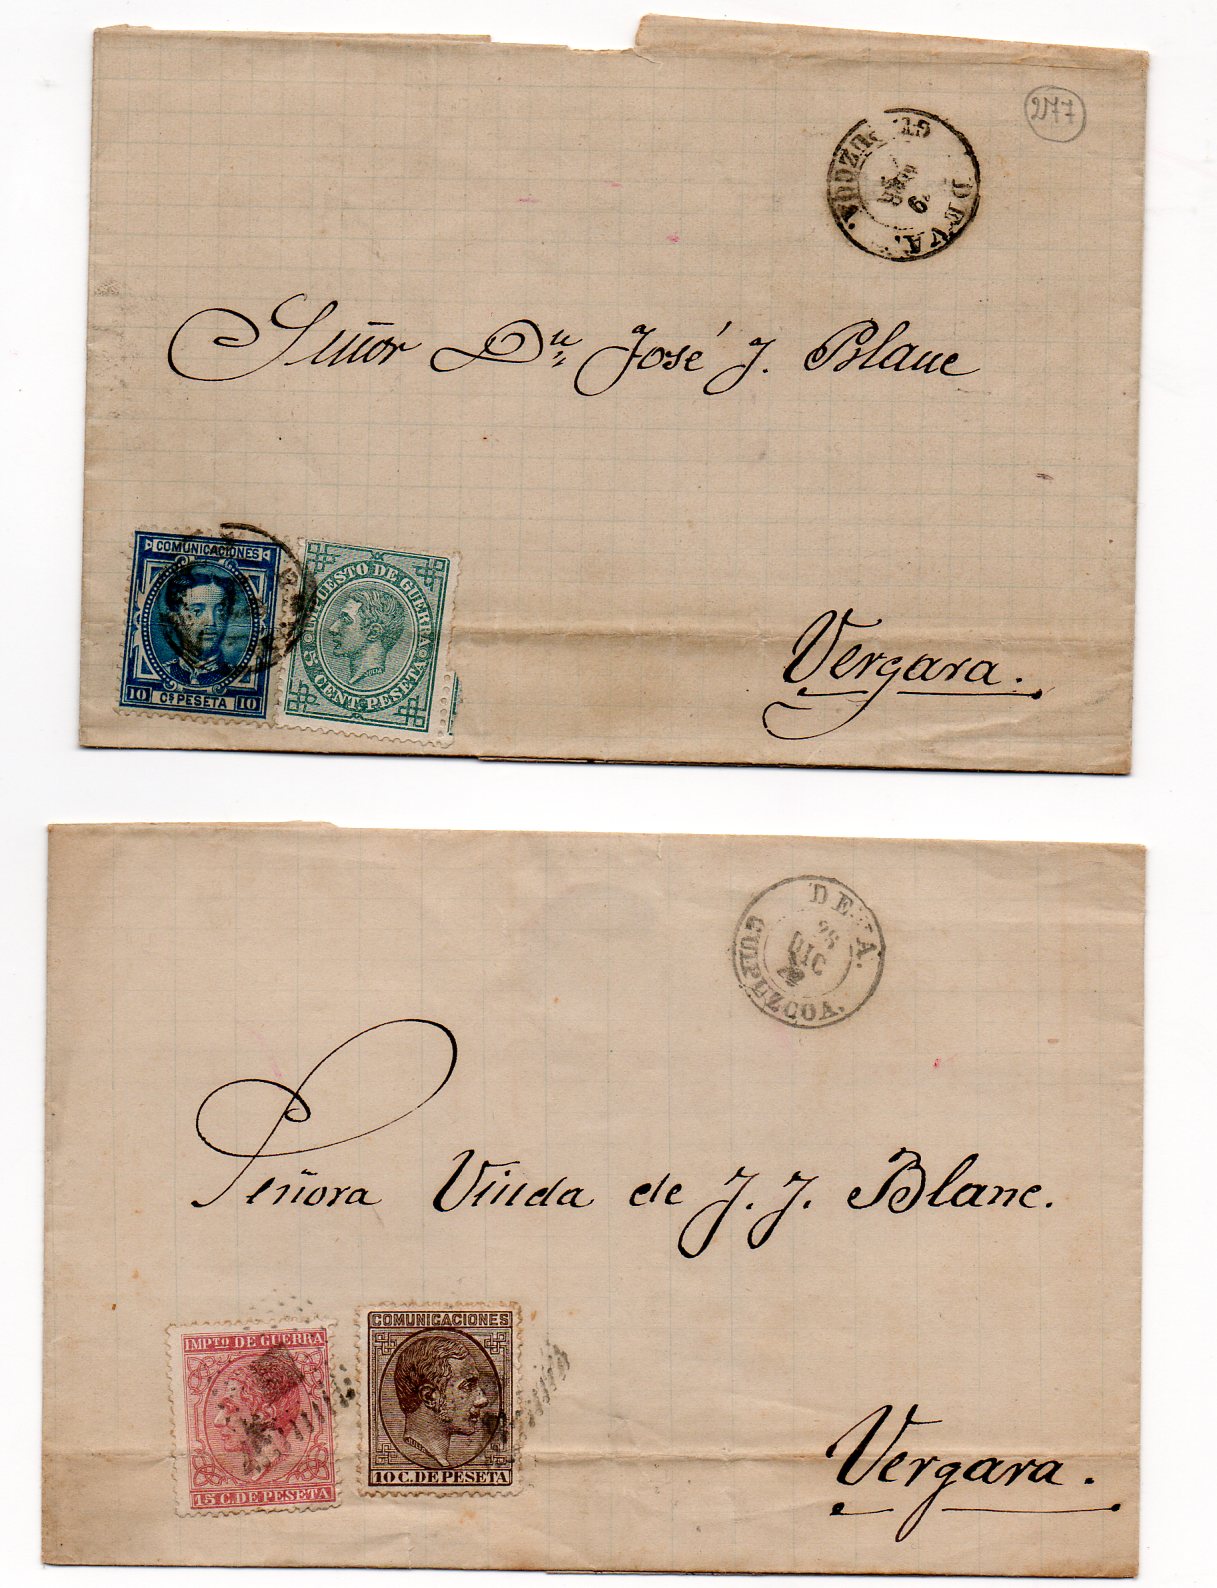 2177
DEVA.
GUIPUZCOA.
Señor Dn José J. Blanc
COMUNICACIONES
10 Cs PESETA 10
IMPUESTO DE GUERRA
5 CENT. PESETA
Vergara.
DEVA.
28
DIC
GUIPUZCOA.
Señora Viuda de J. J. Blanc.
IMPTO DE GUERRA
15 C. DE PESETA
COMUNICACIONES
10 C. DE PESETA
Vergara.